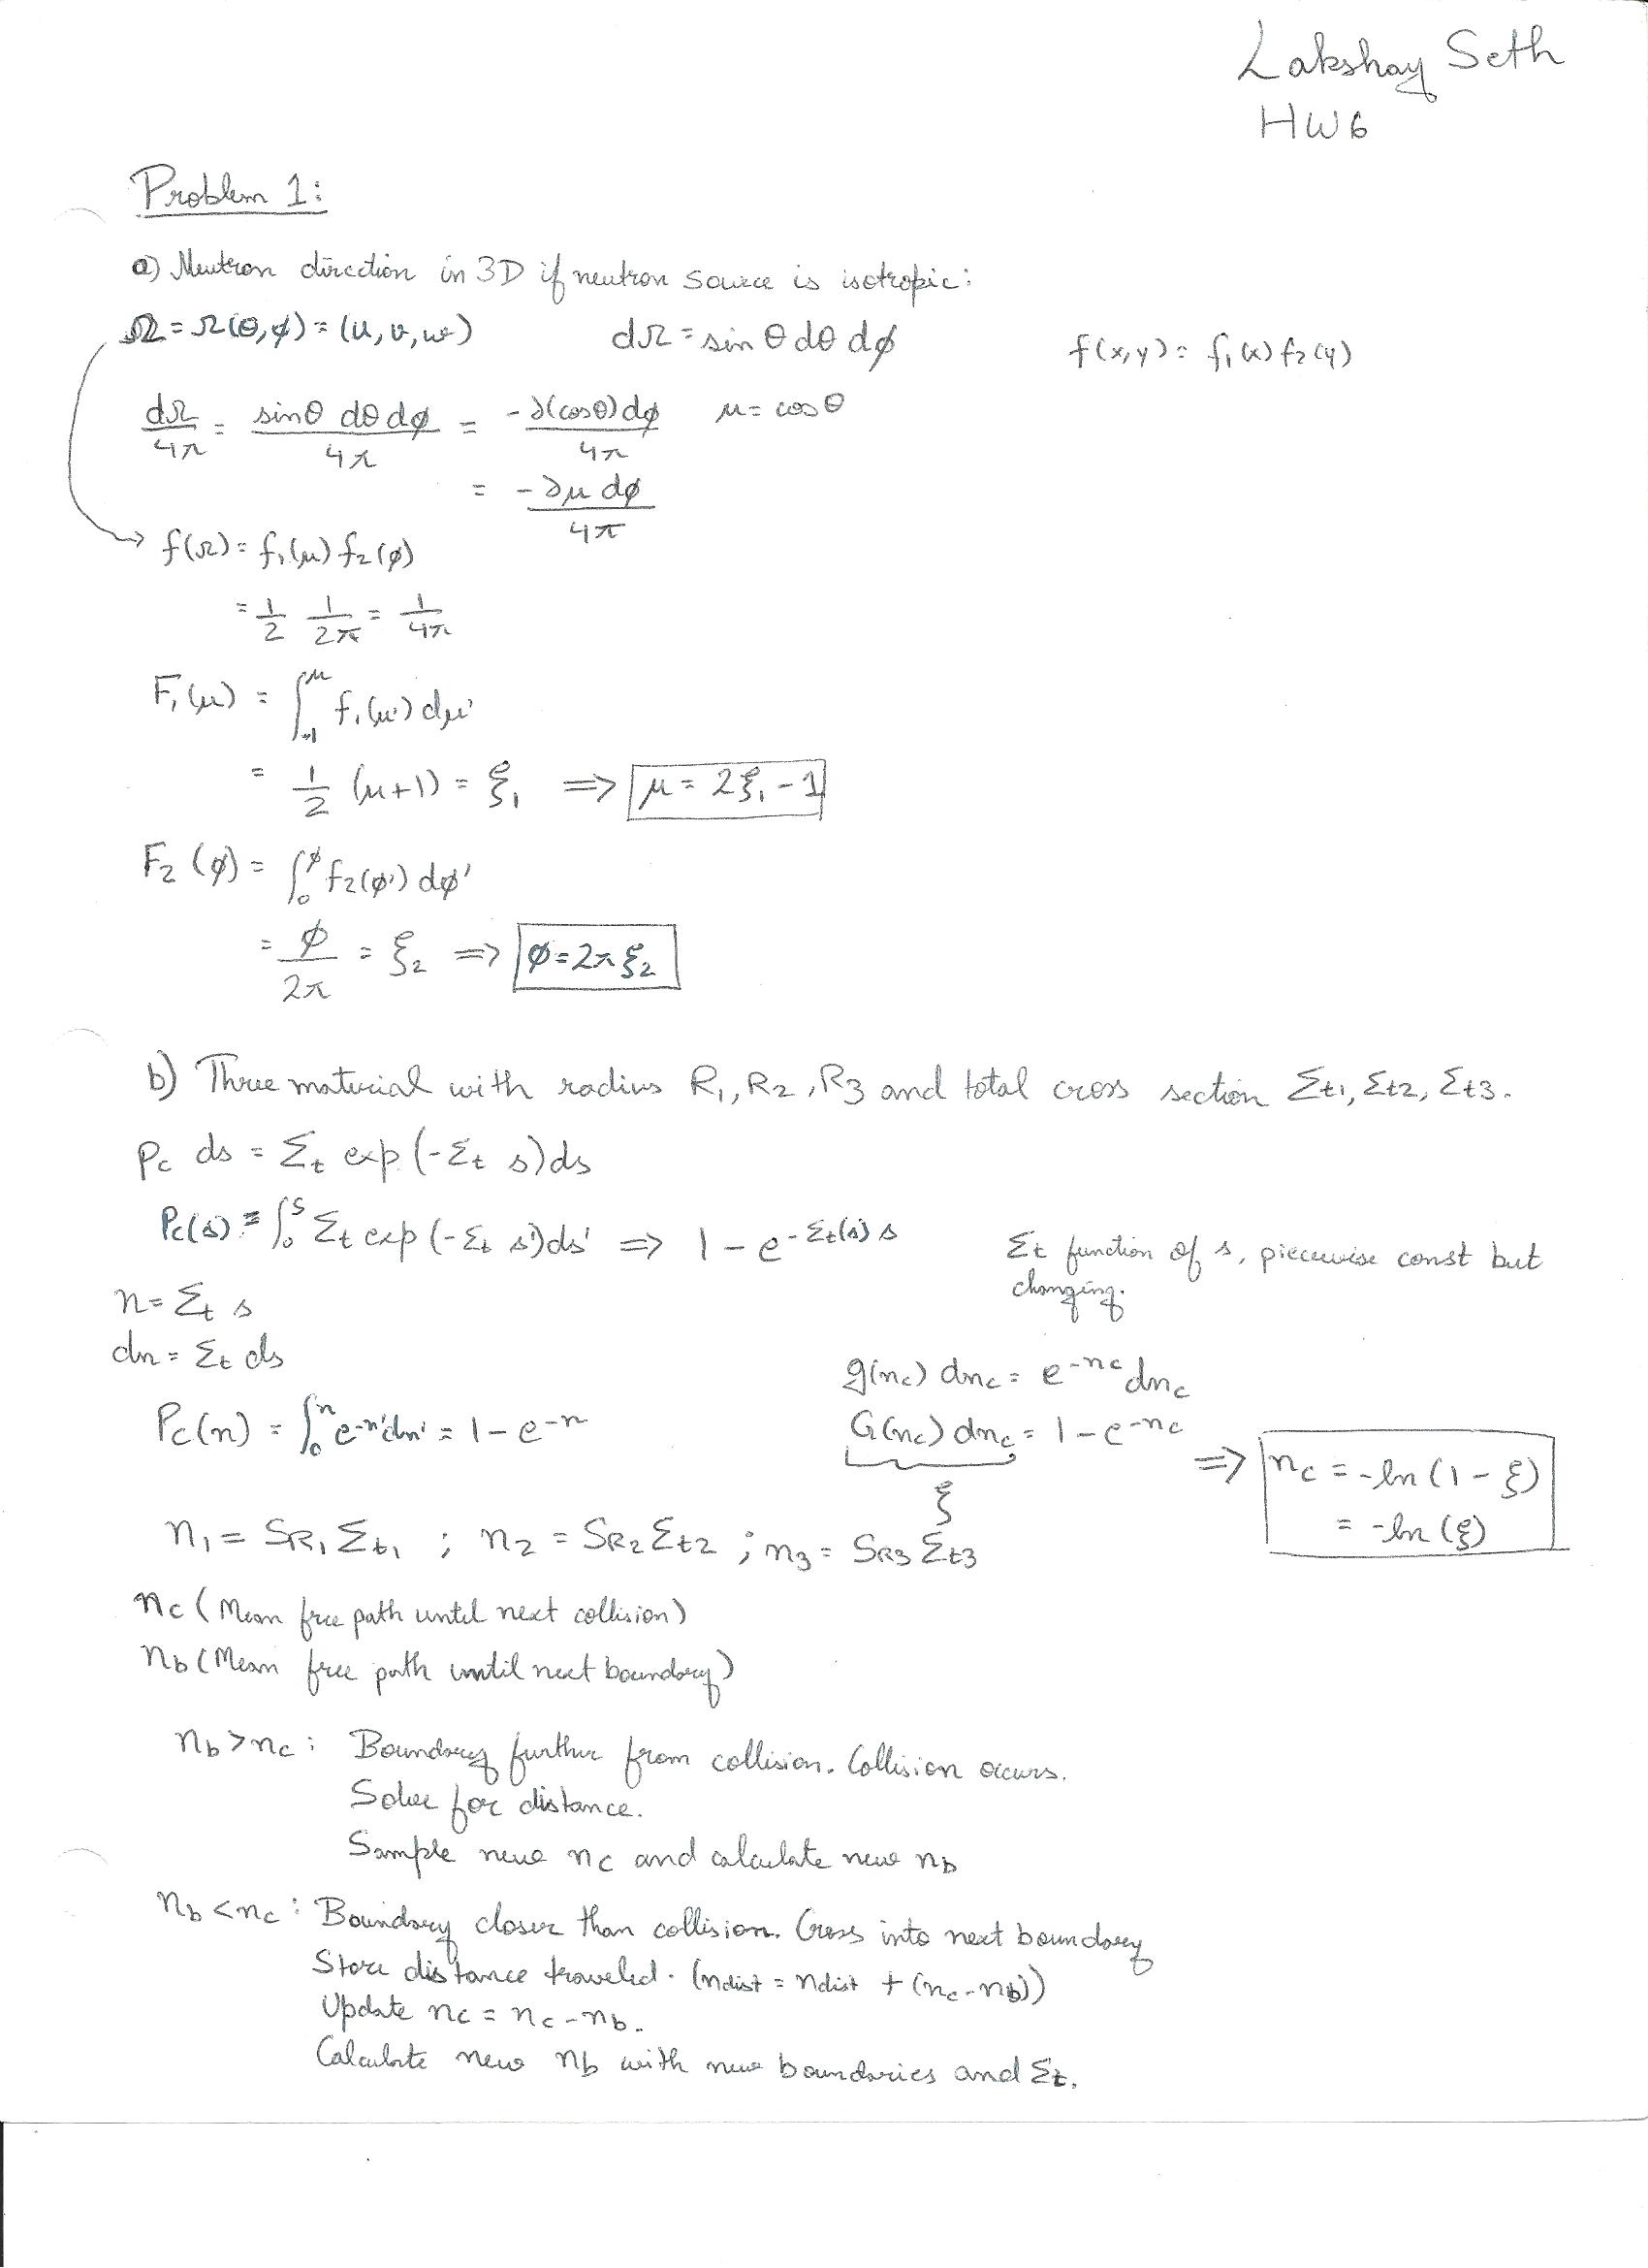 Lakshay Seth
HW6
Problem 1:
a) Neutron direction in 3D if neutron source is isotropic:
Ω = Ω(θ,φ) = (u, v, w) dΩ = sin θ dθ dφ f(x,y) = f₁(x) f₂(y)
dΩ/4π = sinθ dθ dφ/4π = -∂(cosθ)dφ/4π μ = cosθ
= -∂μ dφ/4π
f(Ω) = f₁(μ) f₂(φ)
= 1/2 1/2π = 1/4π
F₁(μ) = ∫₋₁^μ f₁(μ') dμ'
= 1/2 (μ+1) = ξ₁ => μ = 2ξ₁ - 1
F₂(φ) = ∫₀^φ f₂(φ') dφ'
= φ/2π = ξ₂ => φ = 2π ξ₂
b) Three material with radius R₁, R₂, R₃ and total cross section Σt1, Σt2, Σt3.
Pc ds = Σt exp(-Σt s)ds
Pc(s) = ∫₀^s Σt exp(-Σt s')ds' => 1 - e^(-Σt(s) s)
Σt function of s, piecewise const but
changing.
n = Σt s
dn = Σt ds
Pc(n) = ∫₀^n e^(-n')dn' = 1 - e^(-n)
g(nc) dnc = e^(-nc) dnc
G(nc) dnc = 1 - e^(-nc) => nc = -ln(1-ξ)
ξ
= -ln(ξ)
n₁ = SR₁ Σt₁ ; n₂ = SR₂ Σt2 ; n₃ = SR3 Σt3
nc (Mean free path until next collision)
nb (Mean free path until next boundary)
nb > nc : Boundary further from collision. Collision occurs.
Solve for distance.
Sample new nc and calculate new nb
nb < nc : Boundary closer than collision. Cross into next boundary
Store distance traveled. (ndist = ndist + (nc - nb))
Update nc = nc - nb.
Calculate new nb with new boundaries and Σt.